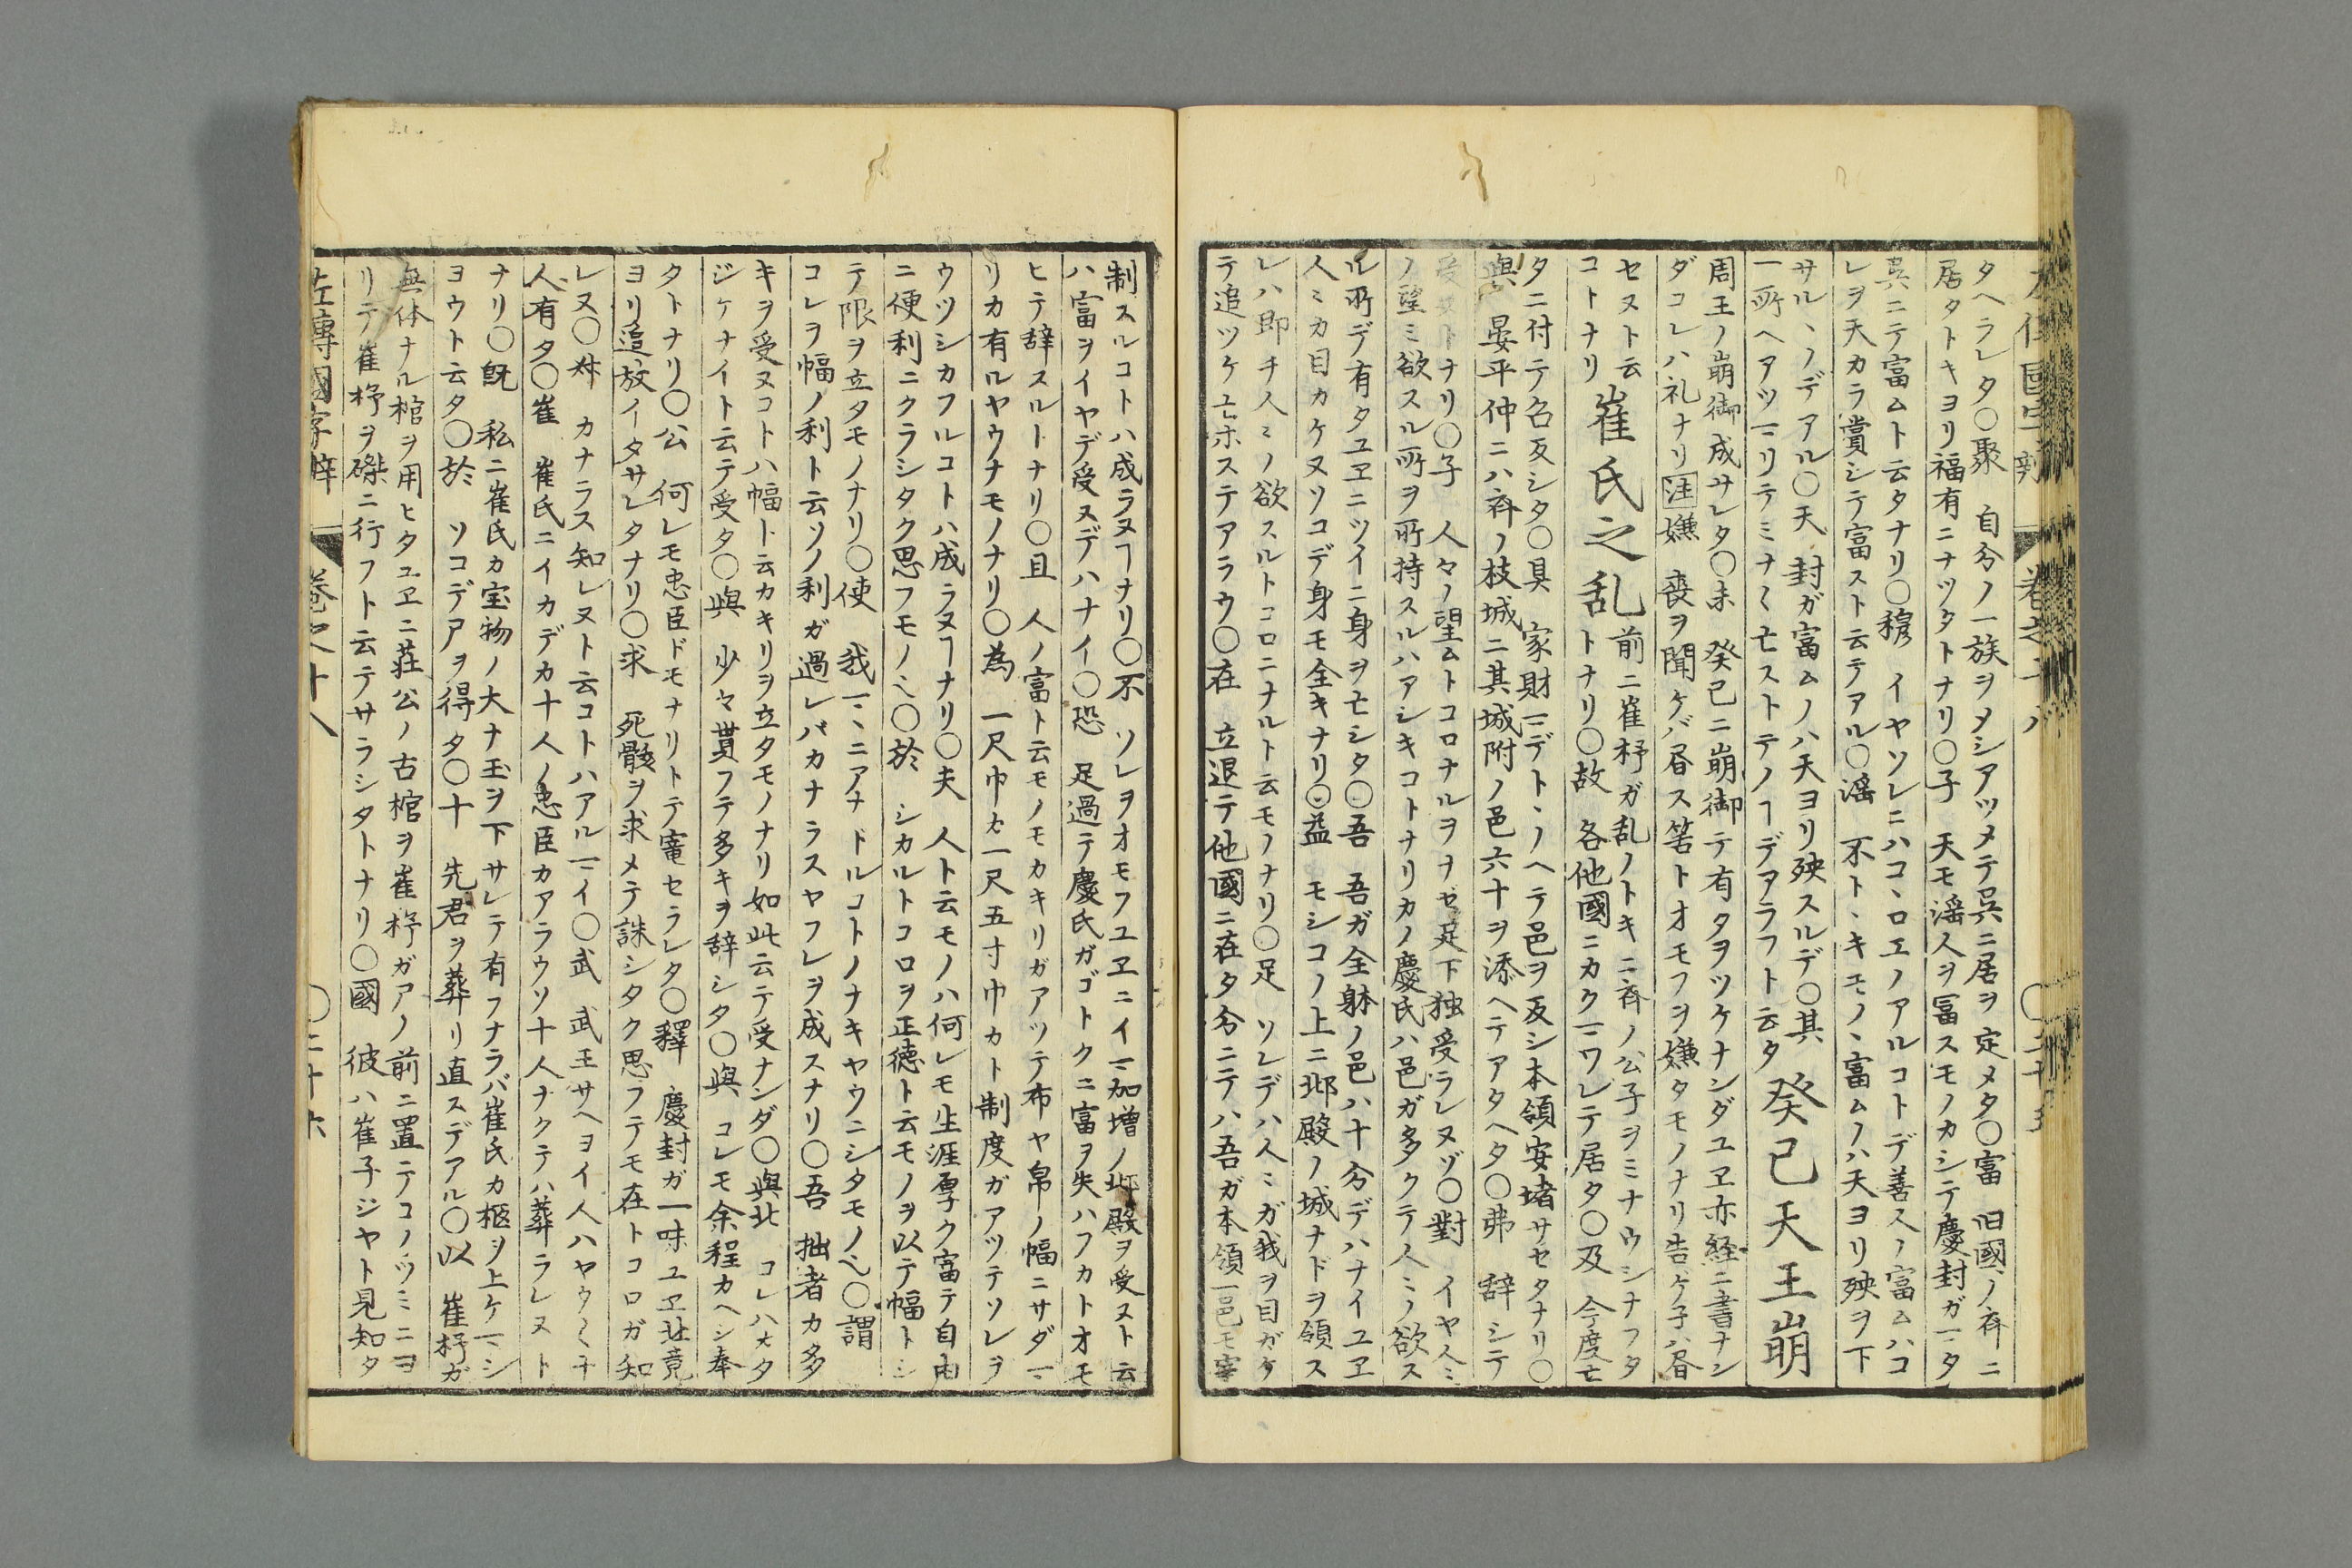 タヘラレタ○聚　自分ノ一族ヲメシアツメテ呉ニ居ヲ定メタ○富　旧國ノ斉ニ
居タトキヨリ福有ニナツタトナリ○子　天モ淫人ヲ冨スモノカシテ慶封ガ一タ
呉ニテ富ムト云タナリ○穆　イヤソレニハコヽロエノアルコトデ善人ノ富ムハコ
レヲ天カラ賞シテ富スト云テアル○淫　不トヽキモノヽ富ムノハ天ヨリ殃ヲ下
サルヽノデアル○天　封ガ富ムノハ天ヨリ殃スルデ○其
一所ヘアツマリテミナ〱亡ストテノヿデアラフト云タ
癸巳天王崩
周王ノ崩御成サレタ○未　癸已ニ崩御テ有タヲツケナンダユヱ亦経ニ書ナン
ダコレハ礼ナリ注嫌　喪ヲ聞ケバ昏ス筈トオモフヲ嫌タモノナリ告ケ子ハ昏
セヌト云
コトナリ
崔氏之乱
前ニ崔杼ガ乱ノトキニ斉ノ公子ヲミナウシナフタ
トナリ○故　各他國ニカクマワレテ居タ○及　今度亡
タニ付テ召反シタ○具　家財マデトヽノヘテ邑ヲ反シ本領安堵サセタナリ○
與　晏平仲ニハ斉ノ枝城ニ其城附ノ邑六十ヲ添ヘテアタヘタ○弗　辞シテ
受ヌトナリ○子　人々ノ望ムトコロナルヲナゼ足下独受ラレヌゾ○對　イヤ人ミ
ノ望ミ欲スル所ヲ所持スルハアシキコトナリカノ慶氏ハ邑ガ多クテ人ミノ欲ス
ル所デ有タユヱニツイニ身ヲ亡シタ○吾　吾ガ全躰ノ邑ハ十分デハナイユヱ
人ミカ目カケヌソコデ身モ全キナリ○益　モシコノ上ニ邶殿ノ城ナドヲ領ス
レハ即チ人ミノ欲スルトコロニナルト云モノナリ○足　ソレデハ人ミガ我ヲ目ガケ
テ追ツケ亡ホステアラウ○在　立退テ他國ニ在タ分ニテハ吾ガ本領一邑モ宰
制スルコトハ成ラヌヿナリ○不　ソレヲオモフユヱニイマ加増ノ邶殿ヲ受ヌト云
ハ富ヲイヤデ受ヌデハナイ○恐　足過テ慶氏ガゴトクニ富ヲ失ハフカトオモ
ヒテ辞スルトナリ○且　人ノ富ト云モノモカキリガアツテ布ヤ帛ノ幅ニサダマ
リカ有ルヤウナモノナリ○為　一尺巾ヤ一尺五寸巾カト制度ガアツテソレヲ
ウツシカフルコトハ成ラヌヿナリ○夫　人ト云モノハ何レモ生涯厚ク富テ自由
ニ便利ニクラシタク思フモノ〱○於　シカルトコロヲ正徳ト云モノヲ以テ幅トシ
テ限ヲ立タモノナリ○使　我マヽニアナドルコトノナキヤウニシタモノ〱○謂
コレヲ幅ノ利ト云ソノ利ガ過レバカナラスヤフレヲ成スナリ○吾　拙者カ多
キヲ受ヌコトハ幅ト云カキリヲ立タモノナリ如此云テ受ナンダ○與北　コレハ大タ
ジケナイト云テ受タ○與　少々貰フテ多キヲ辞シタ○與　コレモ余程カヘシ奉
タトナリ○公　何レモ忠臣ドモナリトテ寵セラレタ○釋　慶封ガ一味ユヱ北竟
ヨリ追放イータサレタナリ○求　死骸ヲ求メテ誅シタク思フテモ在トコロガ知
レヌ○叔　カナラス知レヌト云コトハアルマイ○武　武王サヘヨイ人ハヤウ〱チ
人有タ○崔　崔氏ニイカデカ十人ノ忠臣カアラウソ十人ナクテハ葬ラレヌト
ナリ○既　私ニ崔氏カ宝物ノ大ナ玉ヲ下サレテ有フナラバ崔氏カ柩ヲ上ケマシ
ヨウト云タ○於　ソコデアヲ得タ○十　先君ヲ葬リ直スデアル○以　崔杼ガ
無体ナル棺ヲ用ヒタユヱニ莊公ノ古棺ヲ崔杼ガアノ前ニ置テコノツミニヨ
リテ崔杼ヲ磔ニ行フト云テサラシタトナリ○國　彼ハ崔子ジヤト見知タ
左傳國字辯　巻之十八　○二十六